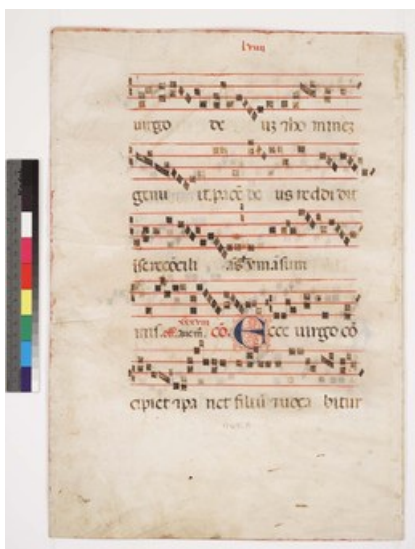 uirgo de uz ⁊ho minez
genu it. pacē de us reddi dit
ī se recōcili ās yma sum
mis. cō. Ecce uirgo cō
cipiet ⁊pa riet filiū ⁊uoca bitur